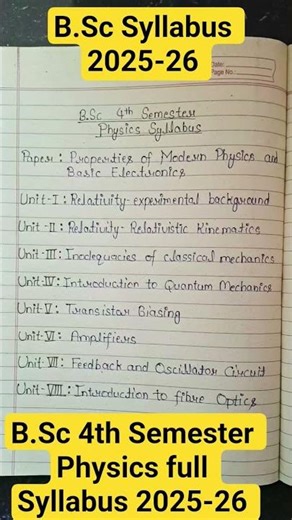 B.Sc Syllabus
2025-26
Date:
Page No.:
B.Sc 4th Semester
Physics Syllabus
Paper : Properties of Modern Physics and
Basic Electronics
Unit-I : Relativity-experimental background
Unit-II : Relativity-Relativistic Kinematics
Unit-III : Inadequacies of classical mechanics
Unit-IV : Introduction to Quantum Mechanics
Unit-V : Transistor Biasing
Unit-VI : Amplifiers
Unit-VII : Feedback and Oscillator Circuit
Unit-VIII : Introduction to fibre Optics
B.Sc 4th Semester
Physics full
Syllabus 2025-26